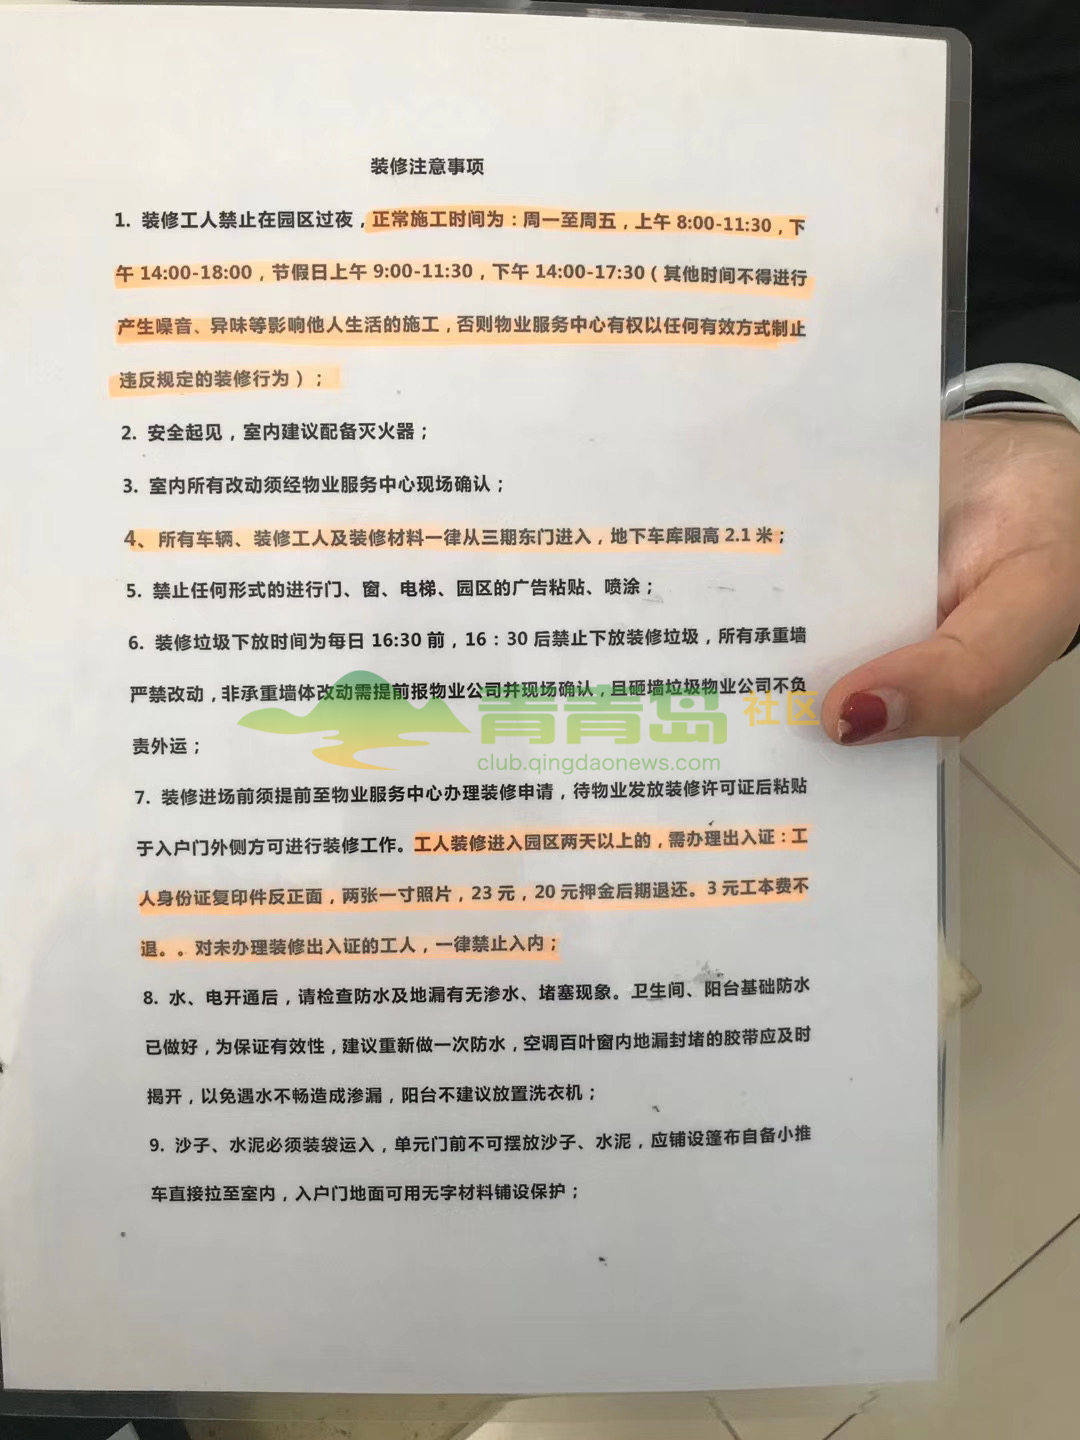 装修注意事项
1. 装修工人禁止在园区过夜，正常施工时间为：周一至周五，上午 8:00-11:30，下
午 14:00-18:00，节假日上午 9:00-11:30，下午 14:00-17:30（其他时间不得进行
产生噪音、异味等影响他人生活的施工，否则物业服务中心有权以任何有效方式制止
违反规定的装修行为）；
2. 安全起见，室内建议配备灭火器；
3. 室内所有改动须经物业服务中心现场确认；
4、所有车辆、装修工人及装修材料一律从三期东门进入，地下车库限高 2.1 米；
5. 禁止任何形式的进行门、窗、电梯、园区的广告粘贴、喷涂；
6. 装修垃圾下放时间为每日 16:30 前，16：30 后禁止下放装修垃圾，所有承重墙
严禁改动，非承重墙体改动需提前报物业公司并现场确认，且砸墙垃圾物业公司不负
责外运；
青青岛 社区
club.qingdaonews.com
7. 装修进场前须提前至物业服务中心办理装修申请，待物业发放装修许可证后粘贴
于入户门外侧方可进行装修工作。工人装修进入园区两天以上的，需办理出入证：工
人身份证复印件反正面，两张一寸照片，23 元，20 元押金后期退还。3 元工本费不
退。。对未办理装修出入证的工人，一律禁止入内；
8. 水、电开通后，请检查防水及地漏有无渗水、堵塞现象。卫生间、阳台基础防水
已做好，为保证有效性，建议重新做一次防水，空调百叶窗内地漏封堵的胶带应及时
揭开，以免遇水不畅造成渗漏，阳台不建议放置洗衣机；
9. 沙子、水泥必须装袋运入，单元门前不可摆放沙子、水泥，应铺设篷布自备小推
车直接拉至室内，入户门地面可用无字材料铺设保护；